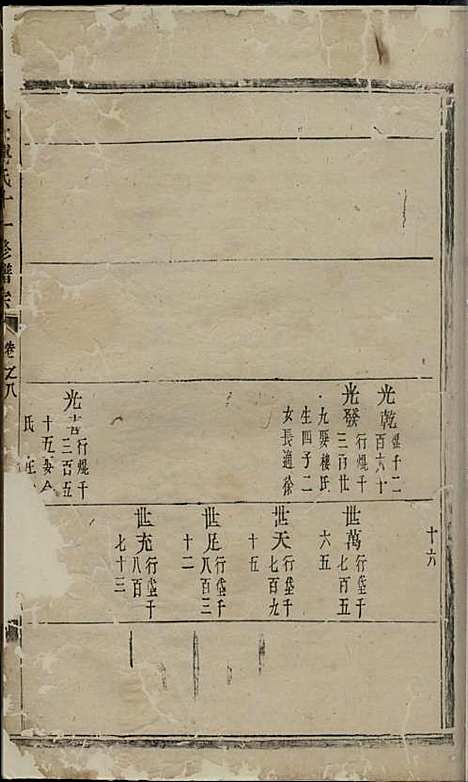 十六
光乾
焜千二
百六十
光發
行焜千
三百廿
九娶樓氏
生四子二
女長適徐
光
行焜千
二百五
十五娶
氏
世萬
行垈千
七百五
六五
世天
行垈千
七百九
十五
世足
行垈千
八百三
十二
世充
行垈千
八百
七十三
氏十一修譜宗
卷之八